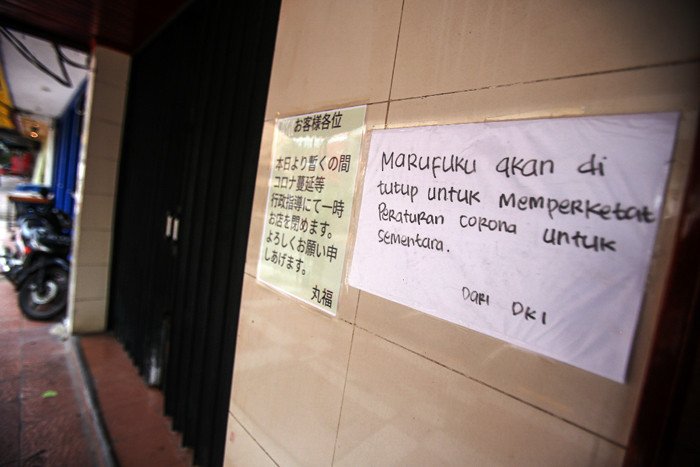 お客様各位
本日より暫くの間
コロナ蔓延等
行政指導にて一時
お店を閉めます。
よろしくお願い申
しあげます。
丸福
MARUFUKU akan di
tutup untuk memperketat
Peraturan corona untuk
sementara.
Dari DKI